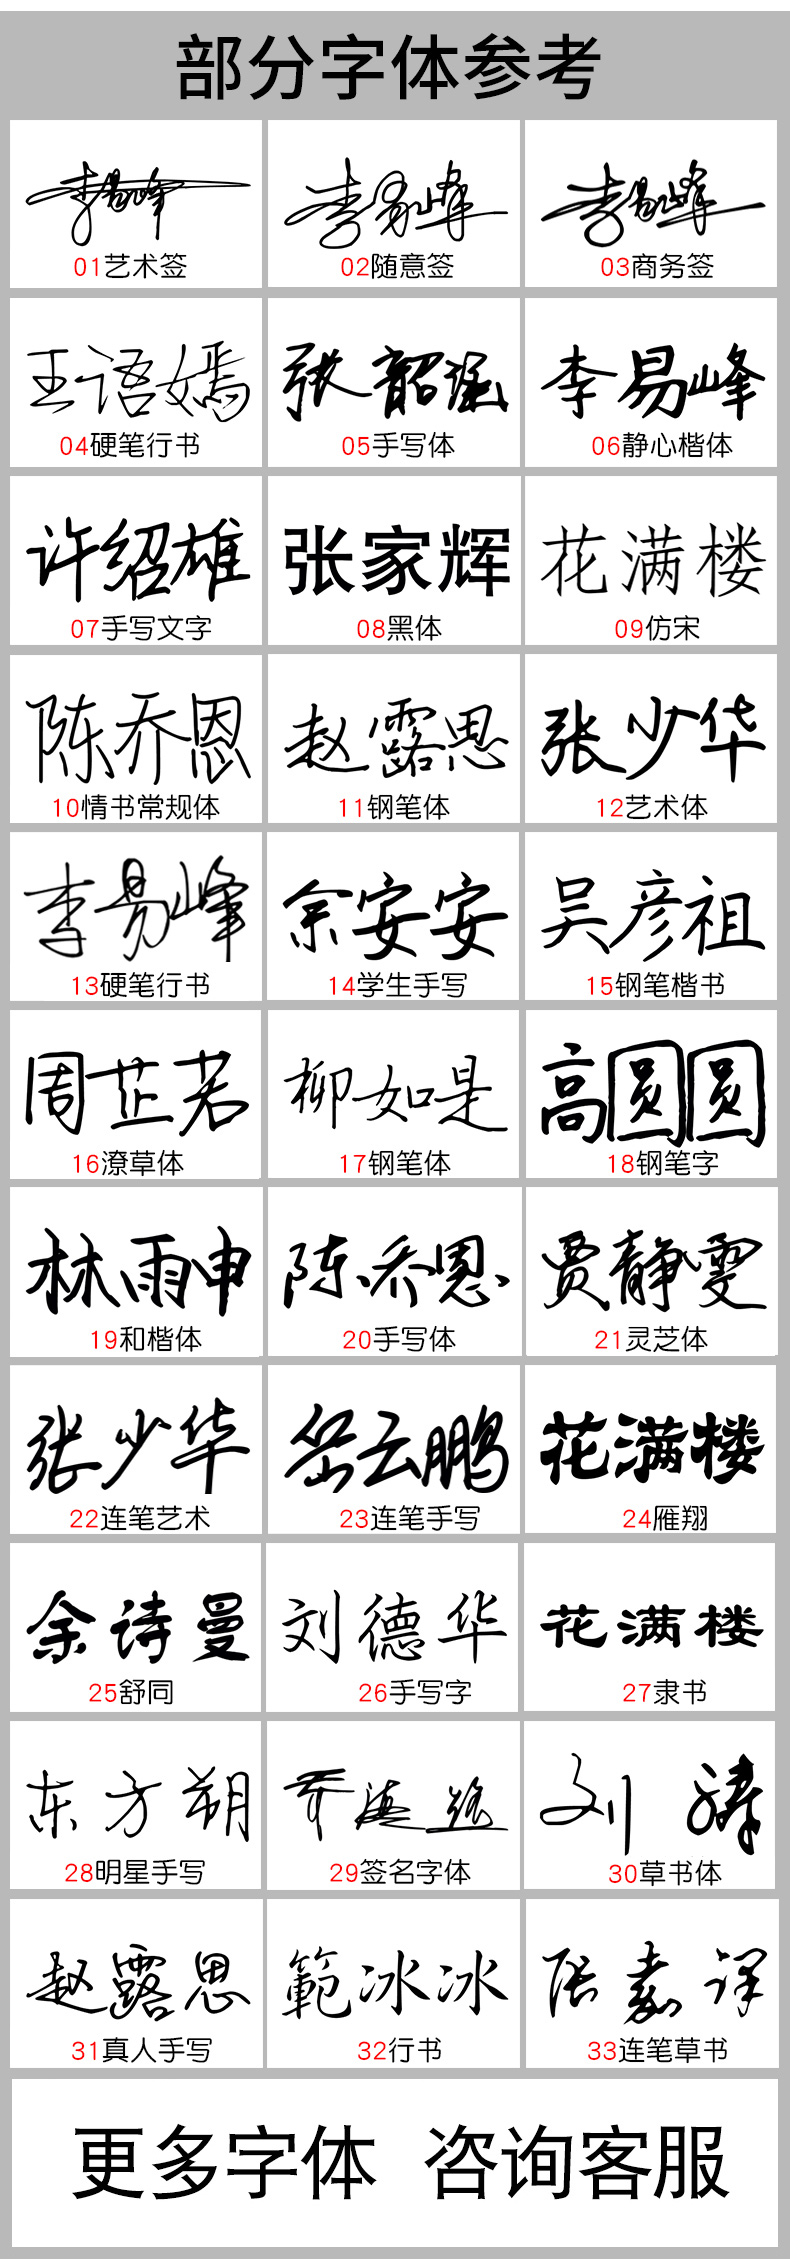 部分字体参考
李易峰 李易峰 李易峰
01艺术签 02随意签 03商务签
王语嫣 张韶涵 李易峰
04硬笔行书 05手写体 06静心楷体
许绍雄 张家辉 花满楼
07手写文字 08黑体 09仿宋
陈乔恩 赵露思 张少华
10情书常规体 11钢笔体 12艺术体
李易峰 余安安 吴彦祖
13硬笔行书 14学生手写 15钢笔楷书
周芷若 柳如是 高圆圆
16潦草体 17钢笔体 18钢笔字
林雨申 陈乔恩 贾静雯
19和楷体 20手写体 21灵芝体
张少华 岳云鹏 花满楼
22连笔艺术 23连笔手写 24雁翔
余诗曼 刘德华 花满楼
25舒同 26手写字 27隶书
东方朔 刘
28明星手写 29签名字体 30草书体
赵露思 範冰冰 张嘉译
31真人手写 32行书 33连笔草书
更多字体 咨询客服